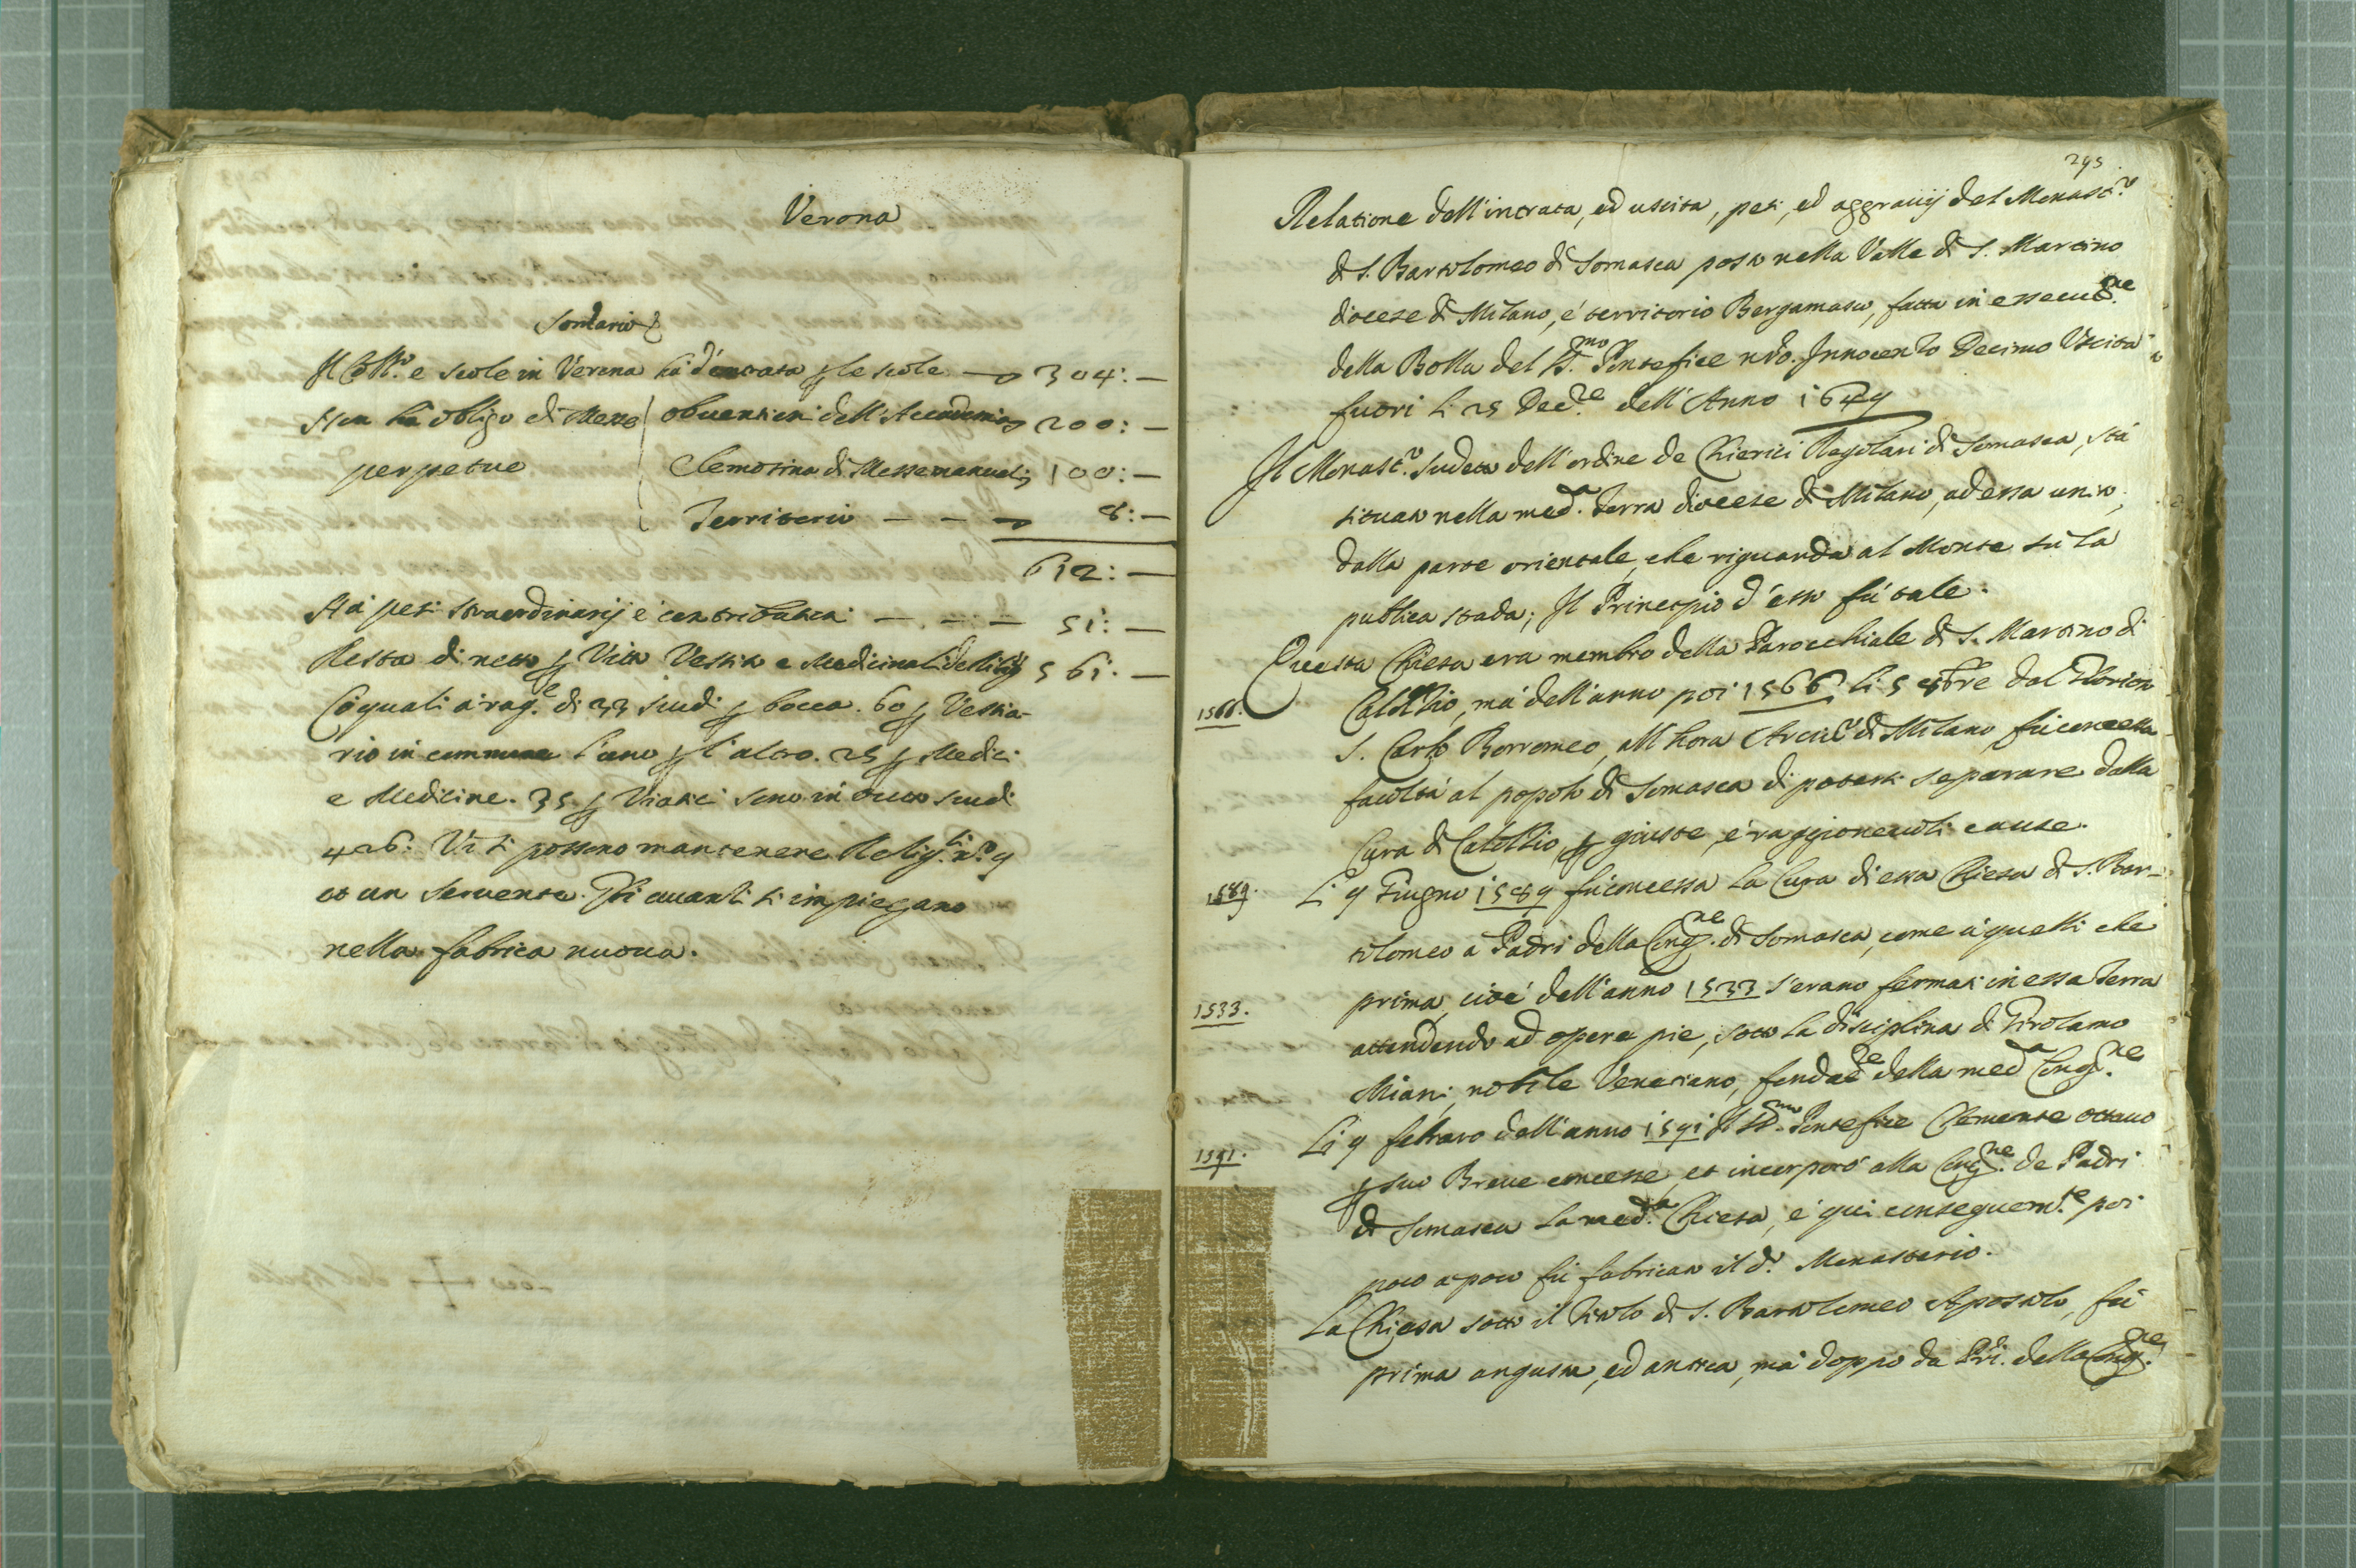 Verona
Som̃ario
Il Coll.º e scole in Verona hà d'entrata p le scole — 304: —
Non hà obligo di Messe obuentioni dell'Accademia 200: —
perpetue Elemosina di Messe manuali 100: —
Territorio — — 8: —
612: —
Hà pesi straordinarij e contributioni — . — — 51: —
Resta di netto p Vitto Vestito e Medicinali de Relig.si 561: —
Co quali à rag.e di 33 scudi p bocca. 60 p Vestia-
rio in commune l'uno p l'altro. 25 p Medici
e Medicine. 35 p Viatici sono in tutto scudi
426: Vi si possono mantenere Relig.si n.º 9
et un seruente. Gli auanti si impiegano
nella fabrica nuoua.
295
Relatione dell'intrata, ed uscita, pesi, ed aggrauij del Monast.º
di S. Bartolomeo di Somasca posto nella Valle di S. Martino
diocese di Milano, e' territorio Bergamasco, fatta in essecut.ne
della Bolla del S.mo Pontefice nr̃o. Innocenzo Decimo Uscita
fuori li 25 Dec.re dell'Anno 1649
Il Monast.º sudetto dell'ordine de Chierici Regolari di Somasca, stà
situato nella med.a Terra diocese di Milano, ad essa unito,
dalla parte orientale, che riguarda al Monte sù la
publica strada; Il Principio d'esso fù tale.
Questa Chiesa era membro della Parocchiale di S. Martino di
1566. Calolzio, mà dell'anno poi 1566 li 5 8bre dal Glorioso
S. Carlo Borromeo, all'hora Arciu.º di Milano fù concessa
facoltà al popolo di Somasca di potersi separare dalla
Cura di Calolzio, p giuste, e' raggioneuoli cause.
1589. Li 9 Giugno 1589 fù concessa la Cura di essa Chiesa di S. Bar-
tolomeo a Padri della Cong.ne di Somasca, come à quelli che
1533. prima, cioè dell'anno 1533 s'erano fermati in essa Terra
attendendo ad opere pie, sotto la disciplina di Girolamo
Miani, nobile Venetiano, fondat.re della med.a Cong.ne
1591. Li 9 febraro dell'anno 1591 il S.mo Pontefice Clemente ottauo
p suo Breue concesse, et incorporò alla Cong.ne de Padri
di Somasca la med.a Chiesa, e' qui conseguem.te poi
poco a poco fù fabricato il d.º Monasterio.
La Chiesa sotto il titolo di S. Bartolomeo Apostolo, fù
prima angusta, ed antica, mà doppo da Pr̃i. della Cong.ne